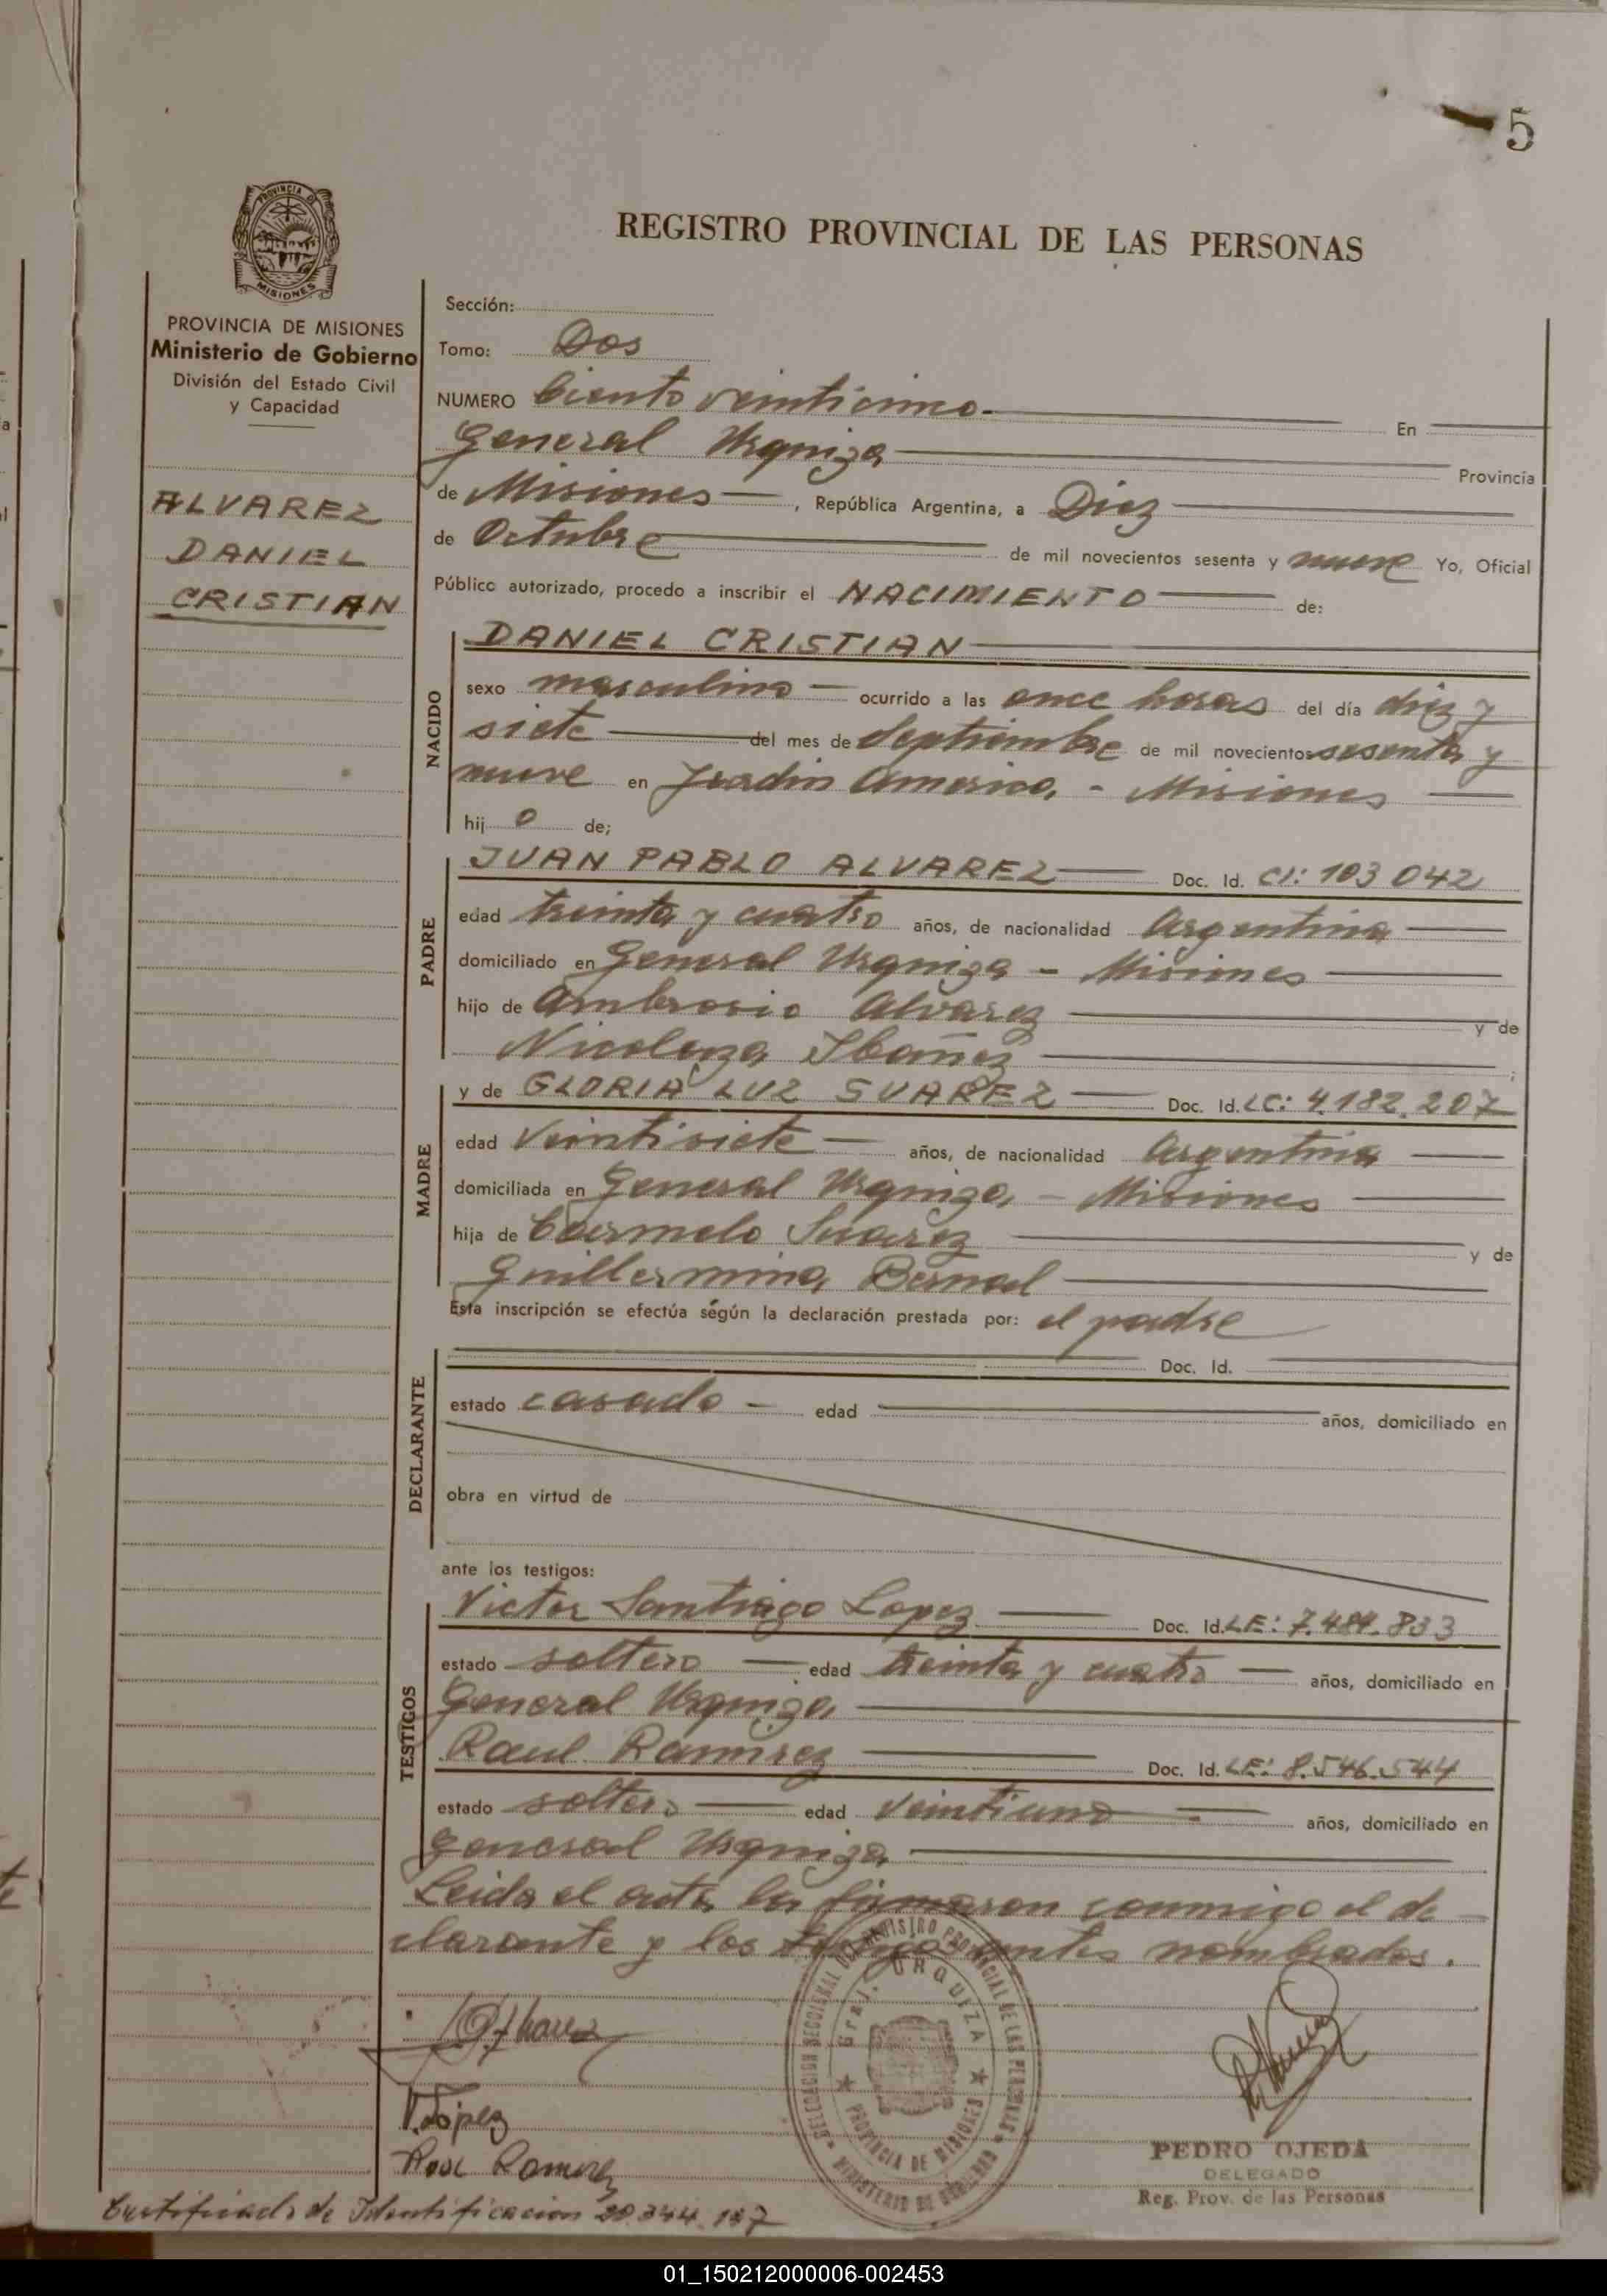 5
PROVINCIA DE
MISIONES
REGISTRO PROVINCIAL DE LAS PERSONAS
PROVINCIA DE MISIONES
Ministerio de Gobierno
División del Estado Civil
y Capacidad
ALVAREZ
DANIEL
CRISTIAN
Sección:
Tomo: Dos
NUMERO Ciento veinticinco.- En
General Urquiza Provincia
de Misiones, República Argentina, a Diez
de Octubre de mil novecientos sesenta y nueve Yo, Oficial
Público autorizado, procedo a inscribir el NACIMIENTO de:
NACIDO
DANIEL CRISTIAN
sexo masculino ocurrido a las once horas del día diez y
siete del mes de Septiembre de mil novecientos sesenta y
nueve en Jardin America, - Misiones
hij o de;
PADRE
JUAN PABLO ALVAREZ Doc. Id. CI: 103 042
edad treinta y cuatro años, de nacionalidad Argentina
domiciliado en General Urquiza - Misiones
hijo de Ambrosio Alvarez y de
Nicolaza Ibañez ;
MADRE
y de GLORIA LUZ SUAREZ Doc. Id. LC: 4.182.207
edad Veintisiete años, de nacionalidad Argentina
domiciliada en General Urquiza, - Misiones
hija de Carmelo Suarez y de
Guillermina Bernal
Esta inscripción se efectúa según la declaración prestada por: el padre
DECLARANTE
Doc. Id.
estado casado - edad años, domiciliado en
obra en virtud de
ante los testigos:
TESTIGOS
Victor Santiago Lopez Doc. Id. LE: 7.484.833
estado soltero edad treinta y cuatro años, domiciliado en
General Urquiza
Raul Ramirez Doc. Id. LE: 8.546.544
estado soltero edad veintiuno años, domiciliado en
General Urquiza
Leida el acta, la firmaron conmigo el de
clarante y los testigos antes nombrados.
DELEGACION SECCIONAL DEL REGISTRO PROVINCIAL DE LAS PERSONAS
Gral. URQUIZA
PROVINCIA DE MISIONES
MINISTERIO DE GOBIERNO
V. López
Ramirez
PEDRO OJEDA
DELEGADO
Reg. Prov. de las Personas
Certificado de Identificacion 20.344.187
01_150212000006-002453